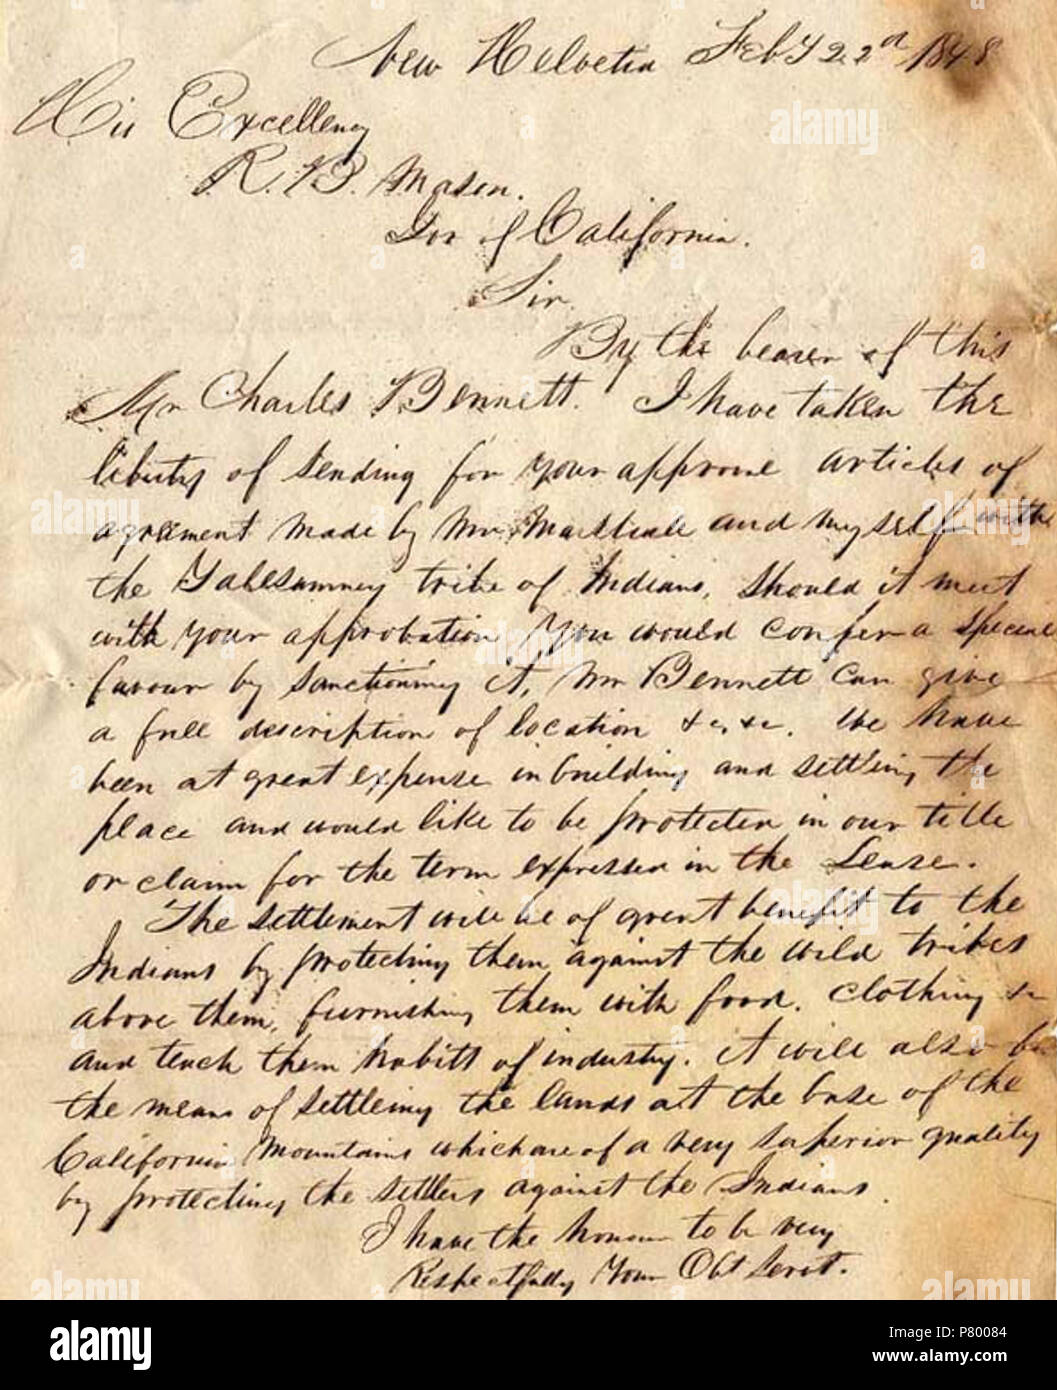 New Helvetia Feby 22d 1848
His Excellency
R. B. Mason.
Gov of California.
Sir.
By the bearer of this
Mr Charles Bennett. I have taken the
liberty of sending for your approval articles of
agreement made by Mr. Marshall and myself with
the Yalesumney tribe of Indians. Should it meet
with your approbation You would confer a special
favour by sanctioning it, Mr Bennett can give
a full description of location &c, &c. We have
been at great expense in building and settling the
place and would like to be protected in our title
or claim for the term expressed in the Lease.
The settlement will be of great benefit to the
Indians by protecting them against the wild tribes
above them, furnishing them with food. Clothing &c
and teach them habits of industry. it will also be
the means of settleing the lands at the base of the
California Mountains which are of a very superior quality
by protecting the settlers against the Indians.
I have the honour to be very
Respectfully Your Obt Servt.
a alamy
alamy
a alamy
alamy
a alamy
alamy
alamy
Image ID: P80084
www.alamy.com